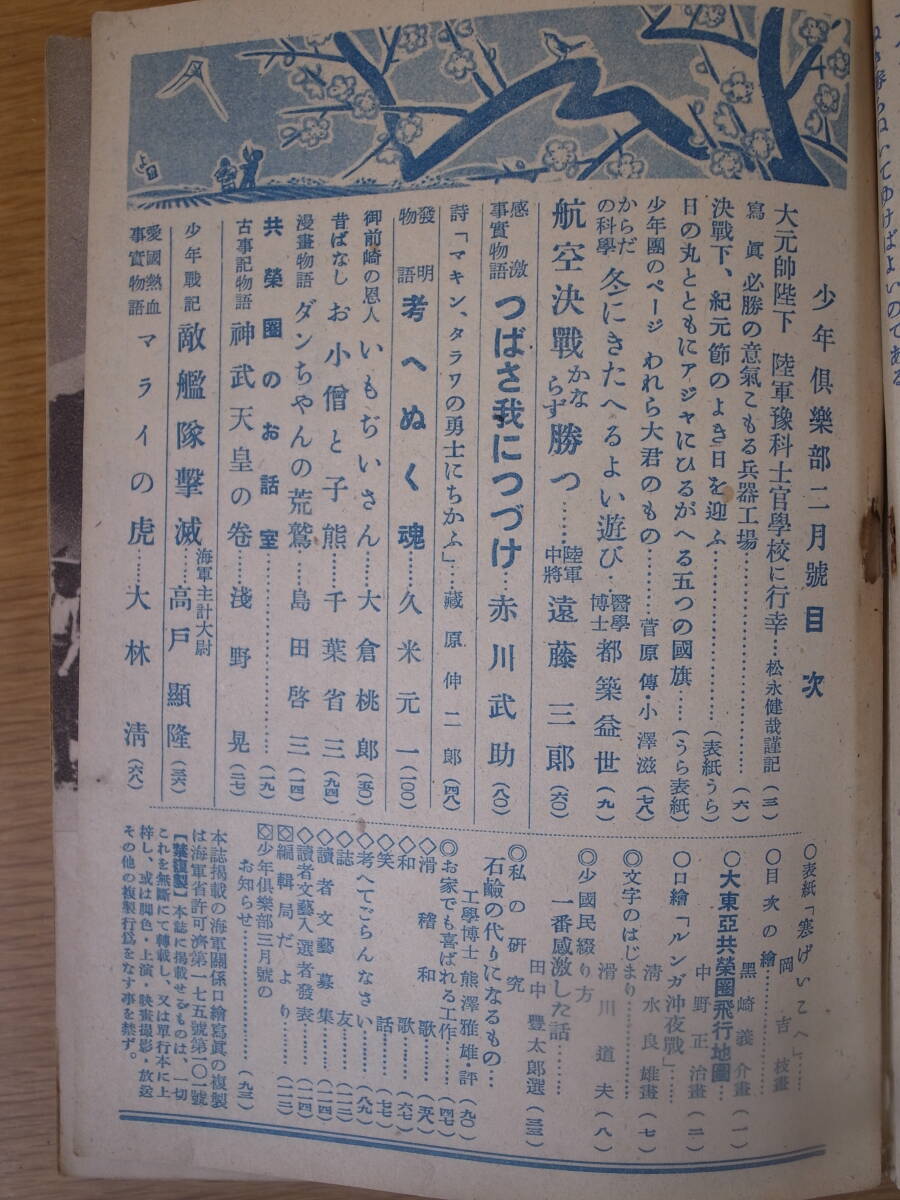 少年俱樂部二月號 目次
大元帥陛下 陸軍豫科士官學校に行幸…松永健哉謹記(三)
寫眞 必勝の意氣こもる兵器工場…………(六)
決戰下、紀元節のよき日を迎ふ…………(表紙うら)
日の丸とともにアジャにひるがへる五つの國旗……(うら表紙)
少年團のページ われら大君のもの………菅原傳・小澤滋(七八)
からだの科學 冬にきたへるよい遊び…醫學博士 都築益世(九)
航空決戰かならず勝つ……陸軍中將 遠藤三郎(六〇)
感激事實物語 つばさ我につづけ…赤川武助(八〇)
詩「マキン、タラワの勇士にちかふ」…藏原伸二郎(四八)
發明物語 考へぬく魂……久米元一(一〇〇)
御前崎の恩人 いもぢいさん……大倉桃郎(五〇)
昔ばなし お小僧と子熊……千葉省三(九四)
漫畫物語 ダンちやんの荒鷲……島田啓三(一四)
共榮圈のお話室…………(一九)
古事記物語 神武天皇の卷……淺野晃(二七)
少年戰記 敵艦隊擊滅……海軍主計大尉 高戶顯隆(三六)
愛國熱血事實物語 マライの虎…大林淸(六八)
○表紙「寒げいこへ」……
岡吉枝畫
○目次の繪…………
黑崎義介畫(一)
○大東亞共榮圈飛行地圖…
中野正治畫(二)
○口繪「ルンガ沖夜戰」……
淸水良雄畫(七)
◎文字のはじまり…………
滑川道夫(八)
◎少國民綴り方
一番感激した話……
田中豐太郎選(三三)
◎私の硏究
石鹼の代りになるもの…
工學博士 熊澤雅雄・評(九〇)
◎お家でも喜ばれる工作…(四七)
◇滑稽和歌……(五八)
◇和歌……(六七)
◇笑話……(七七)
◇考へてごらんなさい……(八九)
◇誌友……(一一二)
◇讀者文藝募集……(一一四)
◇讀者文藝入選者發表……(一一四)
回編輯局だより……(一一二)
回少年俱樂部三月號の
お知らせ…………(九三)
本誌揭載の海軍關係口繪寫眞の複製
は海軍省許可濟第一七五號第一〇一號
【禁複製】本誌に揭載せるものは、一切
これを無斷にて轉載し、又は單行本に上
梓し、或は脚色・上演・映畫撮影・放送
その他の複製行爲をなす事を禁ず。